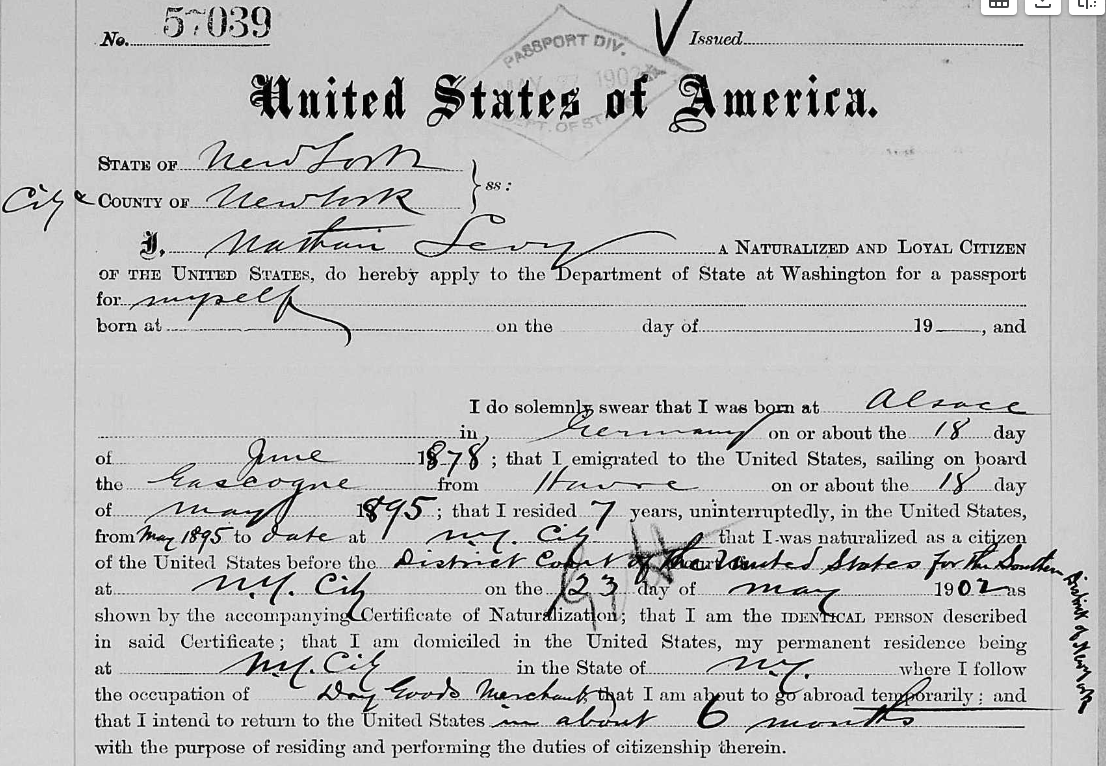 No. 57039 Issued
PASSPORT DIV.
MAY 27 1902
DEPT. OF STATE
United States of America.
STATE OF New York
City & COUNTY OF New York } ss:
I, Nathan Levy a NATURALIZED AND LOYAL CITIZEN
OF THE UNITED STATES, do hereby apply to the Department of State at Washington for a passport
for myself
born at on the day of 19 , and
I do solemnly swear that I was born at Alsace
in Germany on or about the 18 day
of June 1878; that I emigrated to the United States, sailing on board
the Gascogne from Havre on or about the 18 day
of May 1895; that I resided 7 years, uninterruptedly, in the United States,
from May 1895 to date at N.Y. City that I was naturalized as a citizen
of the United States before the District Court of the United States for the Southern District of New York
at N.Y. City on the 23 day of May 1902 as
shown by the accompanying Certificate of Naturalization; that I am the IDENTICAL PERSON described
in said Certificate; that I am domiciled in the United States, my permanent residence being
at N.Y. City in the State of N.Y. where I follow
the occupation of Dry Goods Merchant; that I am about to go abroad temporarily; and
that I intend to return to the United States in about 6 months
with the purpose of residing and performing the duties of citizenship therein.